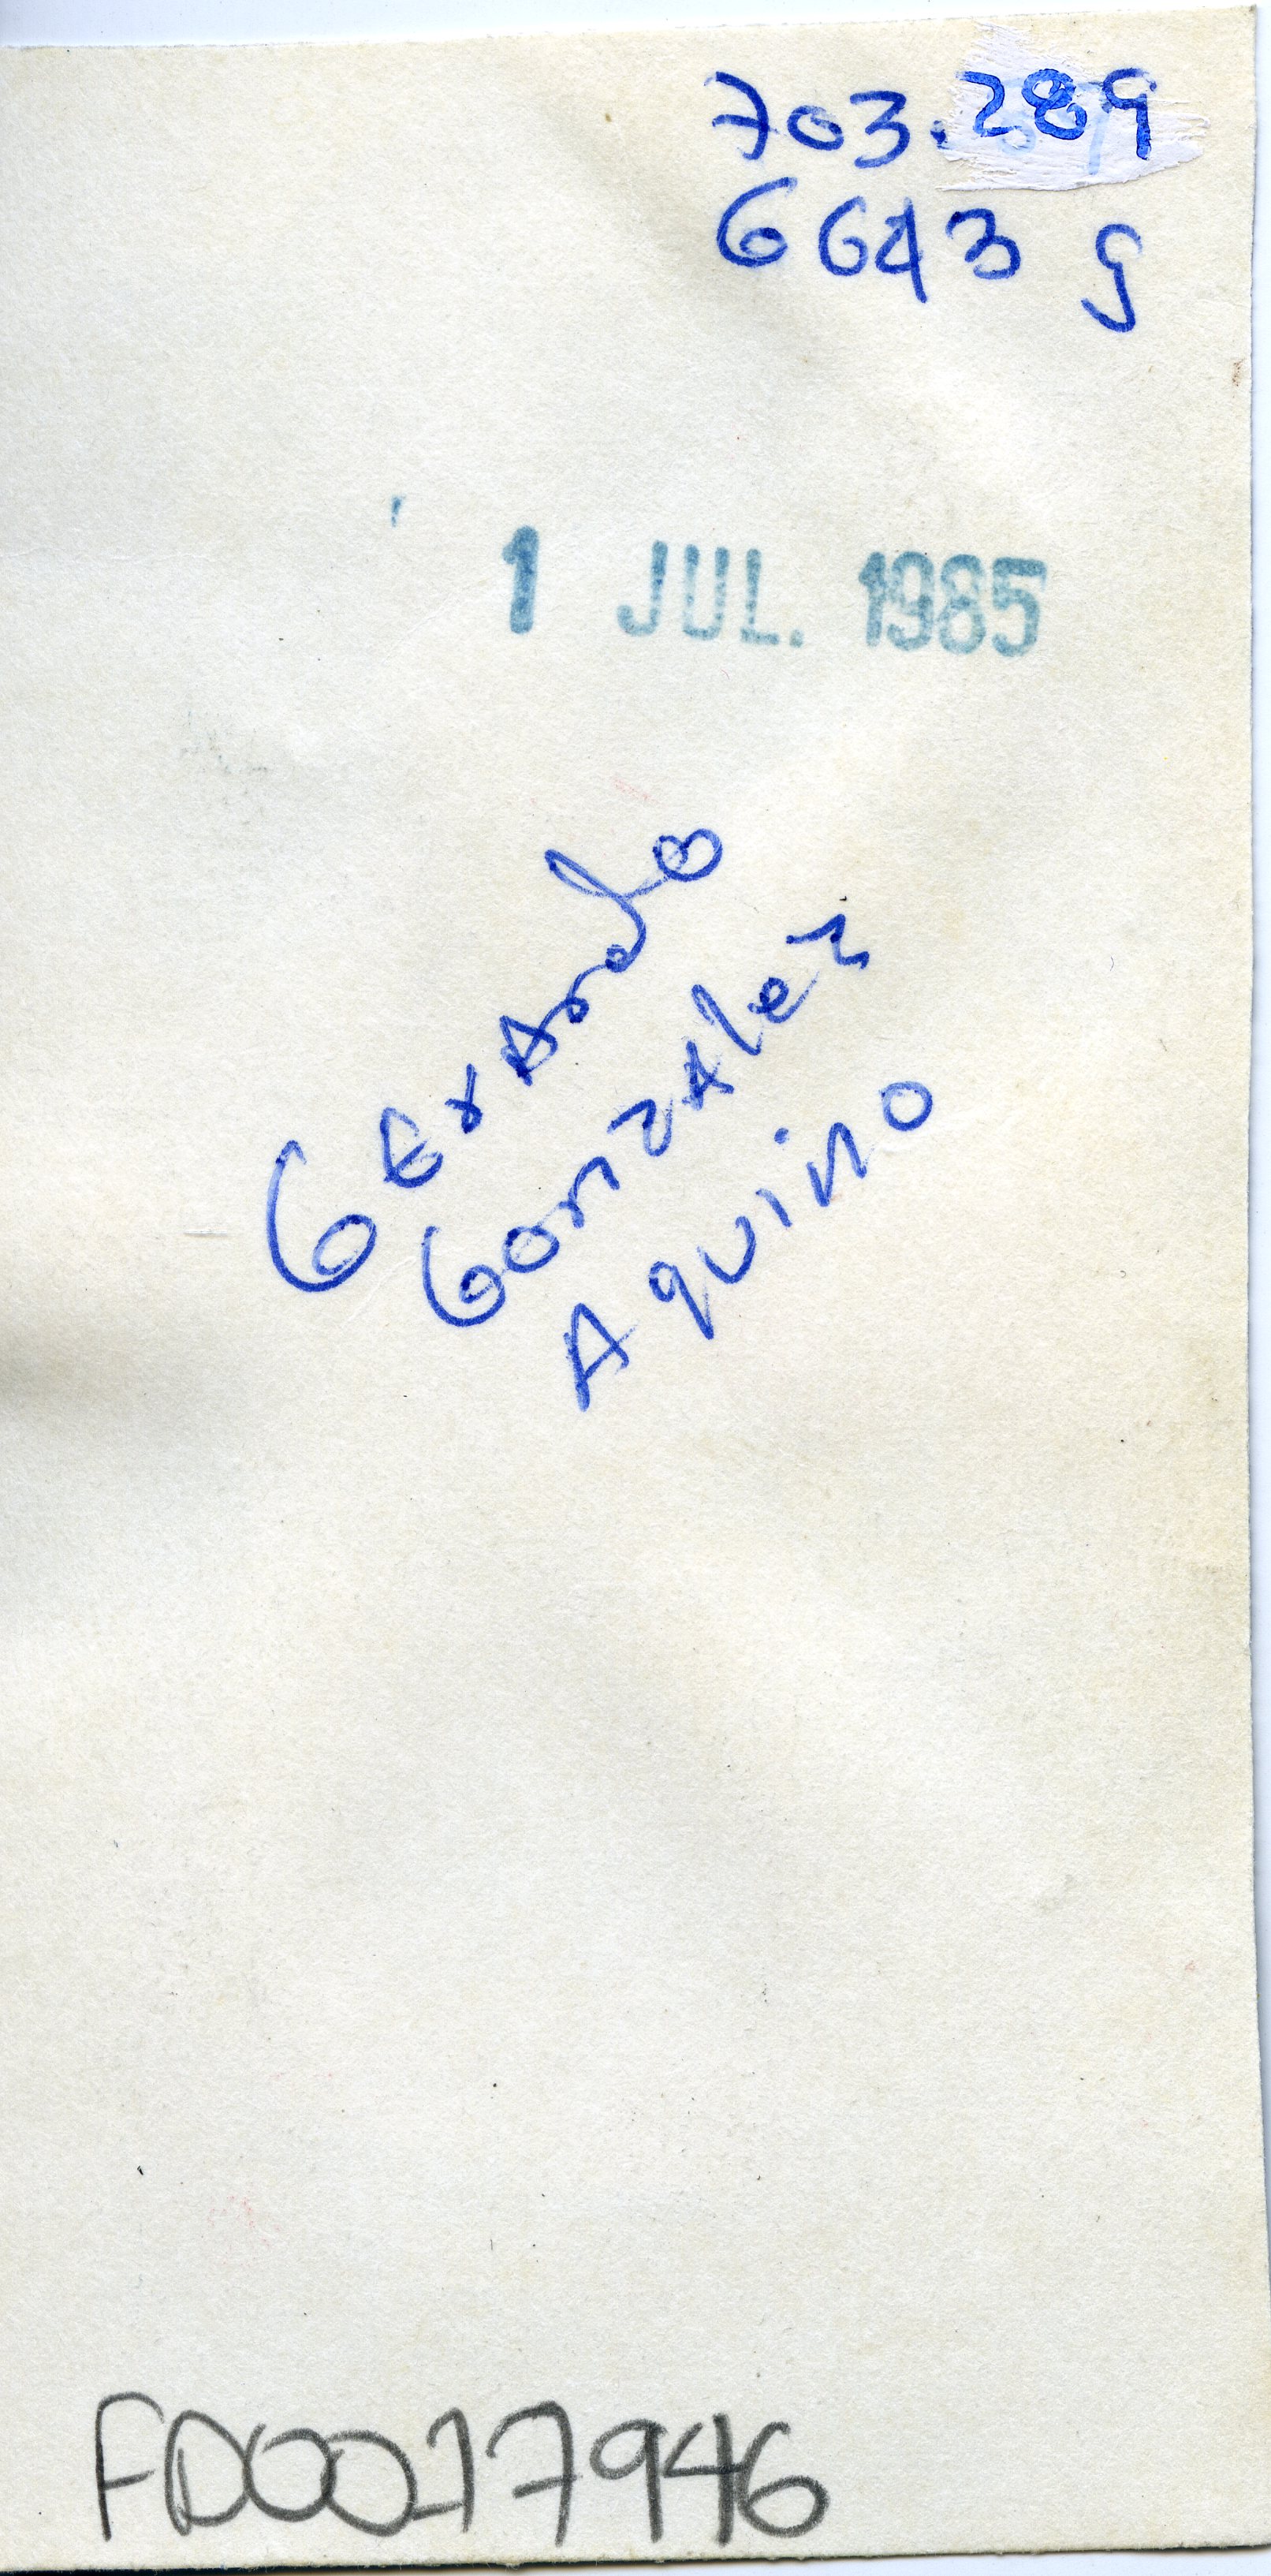 703.289
6643 g
1 JUL. 1985
Gerardo
Gonzalez
Aquino
FD0017946